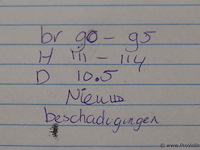 br 90 - 95
H 111 - 114
D 10.5
Nieuw
beschadigingen